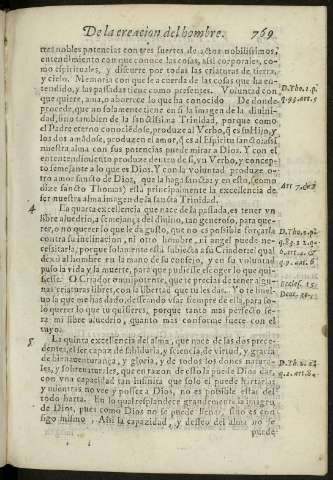 De la creacion del hombre. 769
tres nobles potencias con tres suertes de actos nobilissimos,
entendimiento con que conoce las cosas, assi corporales, como
espirituales, y discurre por todas las criaturas de tierra,
y cielo. Memoria con que se acuerda de las cosas que ha entendido,
y las passadas tiene como presentes. Voluntad con
que quiere, ama, o aborrece lo que ha conocido De donde
procede, que no solamente en si la imagen de la diuinidad,
sino tambien de la sanctissima Trinidad, porque como
el Padre eterno conociendose, produze al Verbo, q̃ es su Hijo, y
los dos amãdose, produzen el amor, q̃ es al Espiritu sancto assi
nuestra alma con sus potencias puede mirar a Dios. Y con el
entendimiento produze dentro de si, vn Verbo, y concepto
semejante a lo que es Dios. Y con la voluntad produze otro
amor sancto de Dios, que la haga sancta: y en esto, (como
dize sancto Thomas) està principalmente la excelencia de
ser nuestra alma imagen de la sancta Trinidad.
4 La quarta excelencia que nace de la passada, es tener vn
libre aluedrio, a semejança del diuino, tan generoso, para querer,
o no querer lo que le da gusto, que no es possible forçarla
contra su inclinacion, ni otro hombre, ni angel puede necessitarla,
porque solamente està subjecta a su Criador: el qual
dexò al hombre en la mano de su consejo, y en su voluntad
puso la vida y la muerte, para que pudiesse escoger lo que quisiesse.
O Criador omnipotente, que te precias de tener algunas
criaturas libres, con la libertad que tu les das. Yo te bueluo
la que me has dado, desseando vsar siempre de ella, para solo
querer lo que tu quisieres, porque tanto mas perfecto serà
mi libre aluedrio, quanto mas conforme fuere con el
tuyo.
5 La quinta excelencia del alma, que nace de las dos precedentes,
es ser capaz de sabiduria, y sciencia, de virtud, y gracia
de bienauenturança, y gloria, y de todos los dones naturales,
y sobrenaturales, que en razon de esto la puede Dios dar,
con vna capacidad tan infinita que solo el puede hartarla:
y mientras no vee y possee a Dios, no es possible estar del
todo harta. En lo qual resplandece grandemente la imagen
de Dios, pues como Dios no se puede llenar, sino es consigo
mismo, Assi la capacidad, y desseo del alma no se
puede
D. Tho. 1. p.
q. 93. art. 5
Art. 7. & 8
D. Tho. 1. p.
q. 83. 1. 2. q.
Eccles. 15.
Deut. 30.